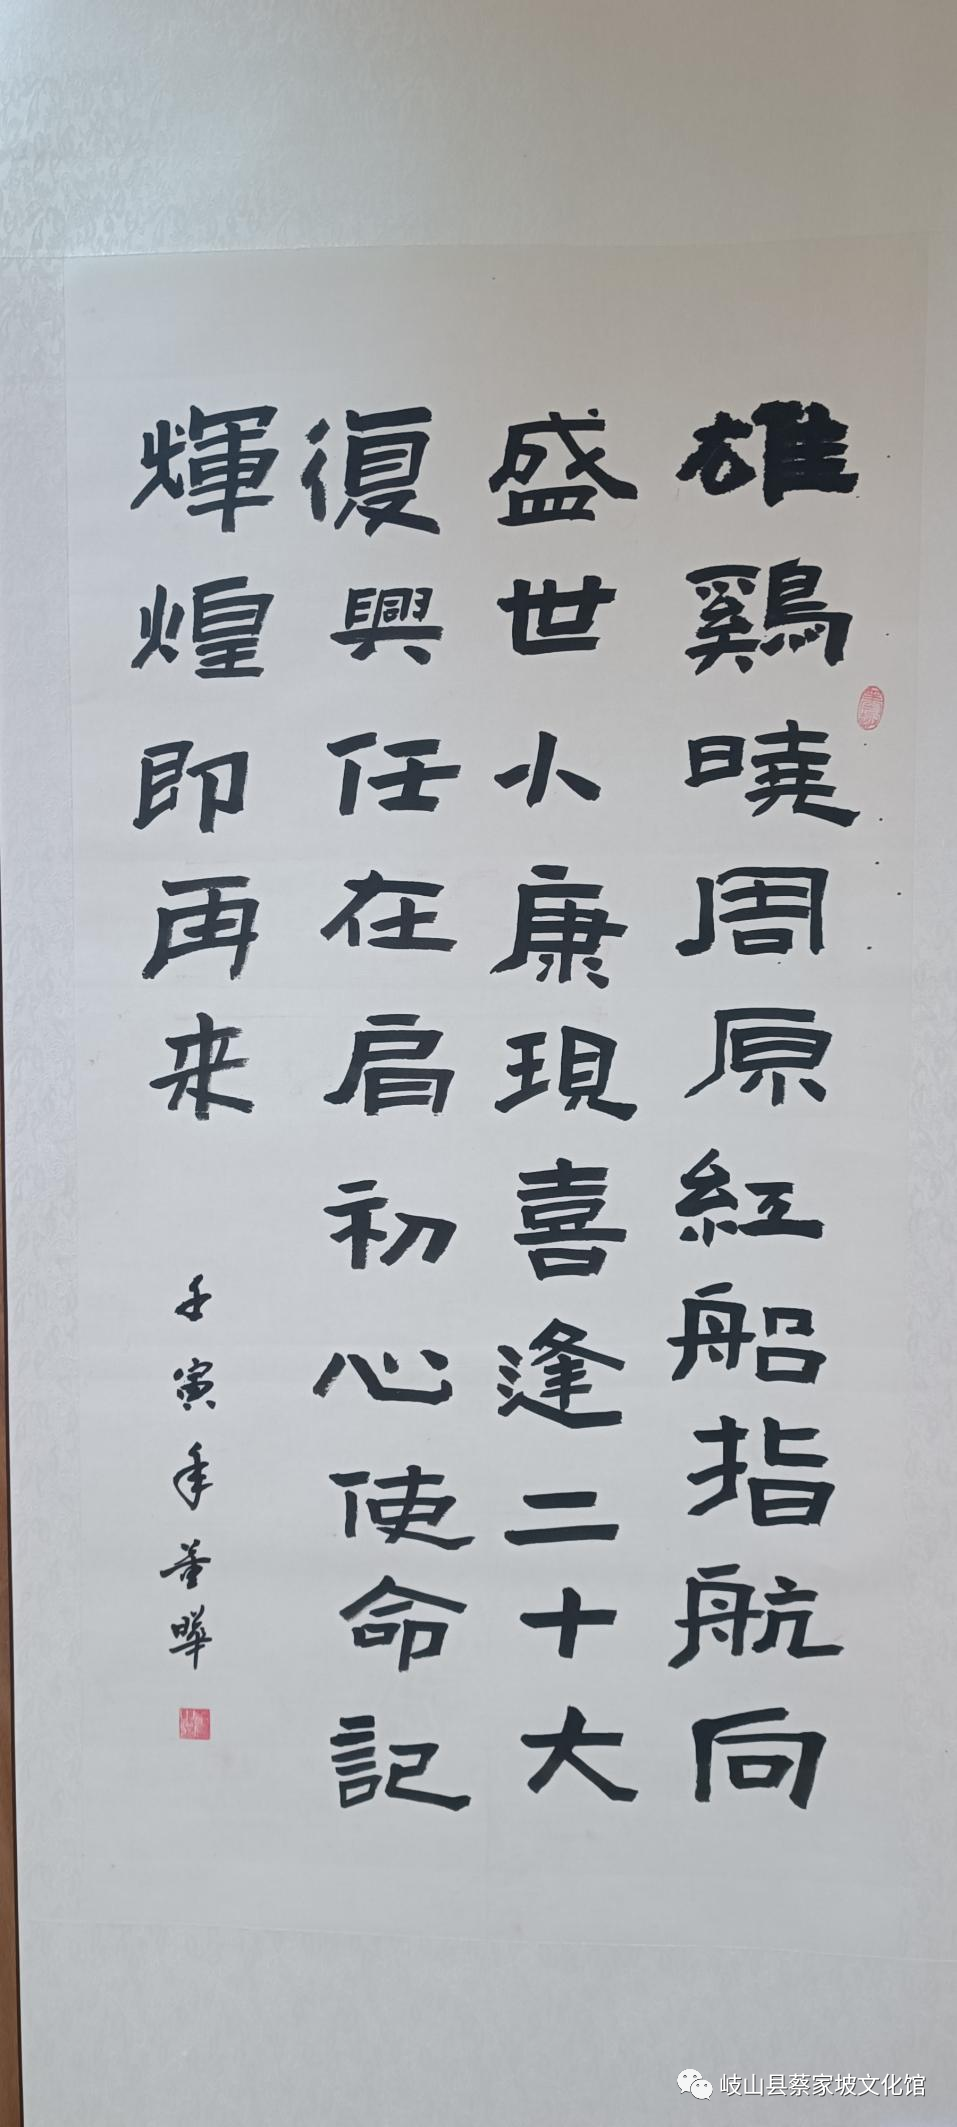 雄鷄曉周原紅船指航向
盛世小康現喜逢二十大
復興任在肩初心使命記
輝煌即再来
壬寅年董曄
岐山县蔡家坡文化馆